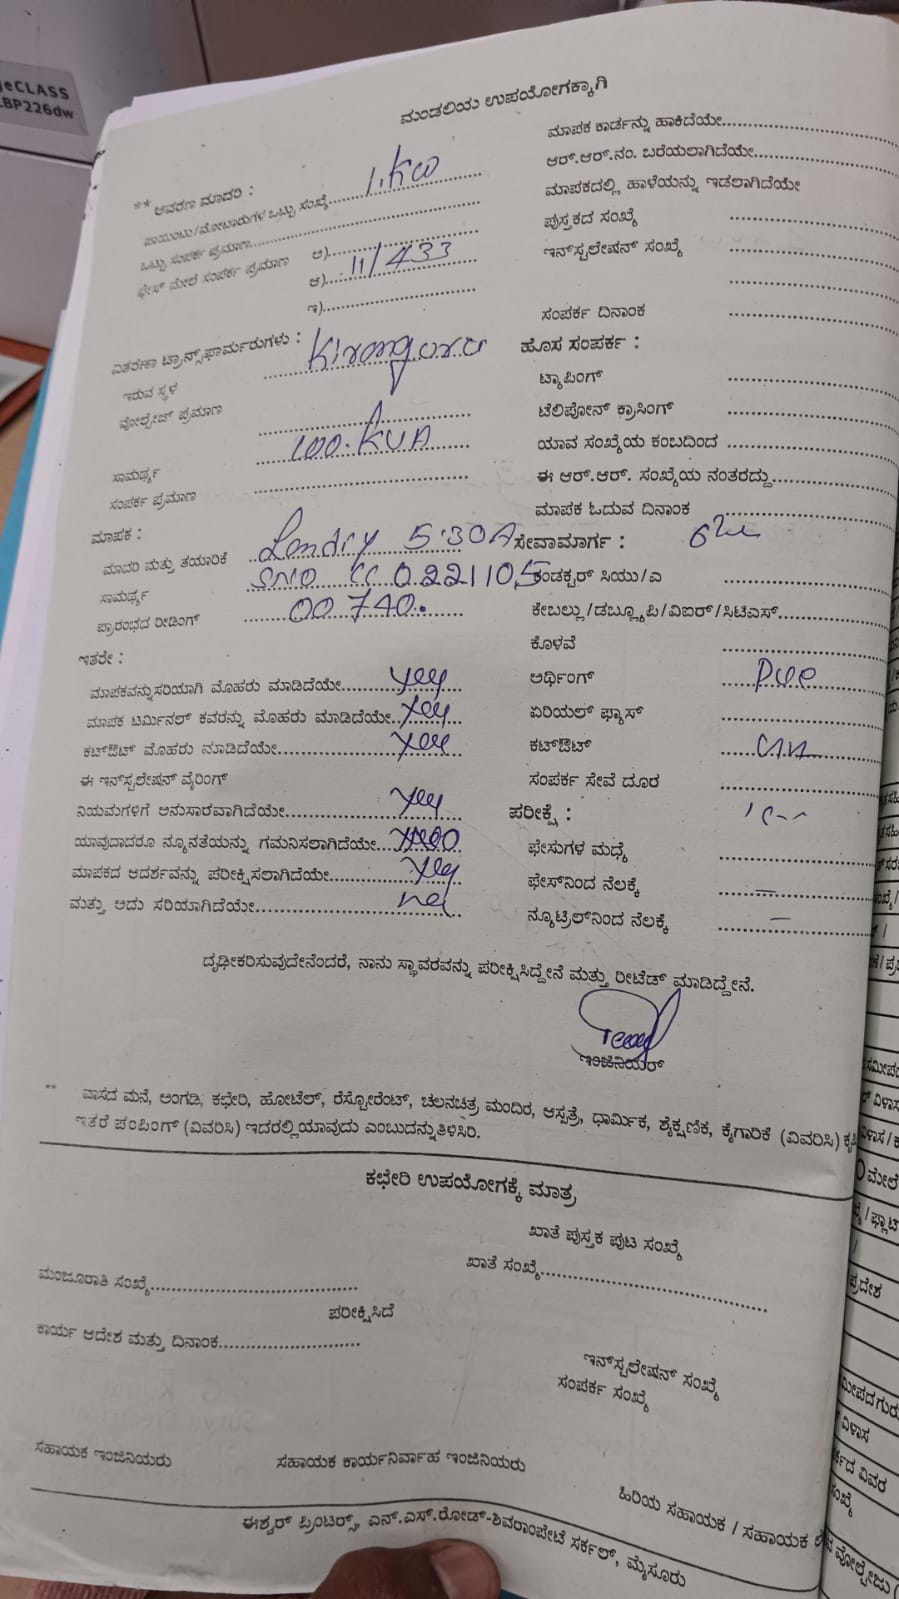 eCLASS
LBP226dw
ಮಂಡಲಿಯ ಉಪಯೋಗಕ್ಕಾಗಿ
** ಆವರಣ ಮಾದರಿ :
ಪಾಯಿಂಟು/ಮೋಟಾರುಗಳ ಒಟ್ಟು ಸಂಖ್ಯೆ 1.KW
ಒಟ್ಟು ಸಂಪರ್ಕ ಪ್ರಮಾಣ
ಫೇಸ್ ಮೇಲೆ ಸಂಪರ್ಕ ಪ್ರಮಾಣ ಅ)
ಆ) 11/433
ಇ)
ವಿತರಣಾ ಟ್ರಾನ್ಸ್‌ಫಾರ್ಮರುಗಳು :
ಇರುವ ಸ್ಥಳ Kirangura
ವೋಲ್ಟೇಜ್ ಪ್ರಮಾಣ
ಸಾಮರ್ಥ್ಯ 100.KVA
ಸಂಪರ್ಕ ಪ್ರಮಾಣ
ಮಾಪಕ :
ಮಾದರಿ ಮತ್ತು ತಯಾರಿಕೆ 5.30A
ಸಾಮರ್ಥ್ಯ SNO CC 0221105
ಪ್ರಾರಂಭದ ರೀಡಿಂಗ್ 00740.
ಇತರೇ :
ಮಾಪಕವನ್ನು ಸರಿಯಾಗಿ ಮೊಹರು ಮಾಡಿದೆಯೇ yes
ಮಾಪಕ ಟರ್ಮಿನಲ್ ಕವರನ್ನು ಮೊಹರು ಮಾಡಿದೆಯೇ yes
ಕಟ್‌ಔಟ್ ಮೊಹರು ಮಾಡಿದೆಯೇ yes
ಈ ಇನ್‌ಸ್ಟಲೇಷನ್ ವೈರಿಂಗ್
ನಿಯಮಗಳಿಗೆ ಅನುಸಾರವಾಗಿದೆಯೇ yes
ಯಾವುದಾದರೂ ನ್ಯೂನತೆಯನ್ನು ಗಮನಿಸಲಾಗಿದೆಯೇ NO
ಮಾಪಕದ ಆದರ್ಶವನ್ನು ಪರೀಕ್ಷಿಸಲಾಗಿದೆಯೇ yes
ಮತ್ತು ಅದು ಸರಿಯಾಗಿದೆಯೇ
ಮಾಪಕ ಕಾರ್ಡನ್ನು ಹಾಕಿದೆಯೇ
ಆರ್.ಆರ್.ನಂ. ಬರೆಯಲಾಗಿದೆಯೇ
ಮಾಪಕದಲ್ಲಿ ಹಾಳೆಯನ್ನು ಇಡಲಾಗಿದೆಯೇ
ಪುಸ್ತಕದ ಸಂಖ್ಯೆ
ಇನ್‌ಸ್ಟಲೇಷನ್ ಸಂಖ್ಯೆ
ಸಂಪರ್ಕ ದಿನಾಂಕ
ಹೊಸ ಸಂಪರ್ಕ :
ಟ್ಯಾಪಿಂಗ್
ಟೆಲಿಪೋನ್ ಕ್ರಾಸಿಂಗ್
ಯಾವ ಸಂಖ್ಯೆಯ ಕಂಬದಿಂದ
ಈ ಆರ್.ಆರ್. ಸಂಖ್ಯೆಯ ನಂತರದ್ದು
ಮಾಪಕ ಓದುವ ದಿನಾಂಕ
ಸೇವಾಮಾರ್ಗ :
ಕಂಡಕ್ಟರ್ ಸಿಯು/ಎ
ಕೇಬಲ್ಲು/ಡಬ್ಲ್ಯೂಪಿ/ವಿಐರ್/ಸಿಟಿಎಸ್
ಕೊಳವೆ
ಅರ್ಥಿಂಗ್
ಏರಿಯಲ್ ಫ್ಯೂಸ್
ಕಟ್‌ಔಟ್
ಸಂಪರ್ಕ ಸೇವೆ ದೂರ
ಪರೀಕ್ಷೆ :
ಫೇಸುಗಳ ಮಧ್ಯೆ
ಫೇಸ್‌ನಿಂದ ನೆಲಕ್ಕೆ —
ನ್ಯೂಟ್ರಿಲ್‌ನಿಂದ ನೆಲಕ್ಕೆ —
ದೃಢೀಕರಿಸುವುದೇನೆಂದರೆ, ನಾನು ಸ್ಥಾವರವನ್ನು ಪರೀಕ್ಷಿಸಿದ್ದೇನೆ ಮತ್ತು ರೀಟೆಡ್ ಮಾಡಿದ್ದೇನೆ.
ಇಂಜಿನಿಯರ್
** ವಾಸದ ಮನೆ, ಅಂಗಡಿ, ಕಛೇರಿ, ಹೋಟೆಲ್, ರೆಸ್ಟೋರೆಂಟ್, ಚಲನಚಿತ್ರ ಮಂದಿರ, ಆಸ್ಪತ್ರೆ, ಧಾರ್ಮಿಕ, ಶೈಕ್ಷಣಿಕ, ಕೈಗಾರಿಕೆ (ವಿವರಿಸಿ)
ಇತರೆ ಪಂಪಿಂಗ್ (ವಿವರಿಸಿ) ಇದರಲ್ಲಿ ಯಾವುದು ಎಂಬುದನ್ನು ತಿಳಿಸಿರಿ.
ಕಛೇರಿ ಉಪಯೋಗಕ್ಕೆ ಮಾತ್ರ
ಖಾತೆ ಪುಸ್ತಕ ಪುಟ ಸಂಖ್ಯೆ
ಖಾತೆ ಸಂಖ್ಯೆ
ಮಂಜೂರಾತಿ ಸಂಖ್ಯೆ
ಪರೀಕ್ಷಿಸಿದೆ
ಕಾರ್ಯ ಆದೇಶ ಮತ್ತು ದಿನಾಂಕ
ಇನ್‌ಸ್ಟಲೇಷನ್ ಸಂಖ್ಯೆ
ಸಂಪರ್ಕ ಸಂಖ್ಯೆ
ಸಹಾಯಕ ಇಂಜಿನಿಯರು
ಸಹಾಯಕ ಕಾರ್ಯನಿರ್ವಾಹ ಇಂಜಿನಿಯರು
ಹಿರಿಯ ಸಹಾಯಕ / ಸಹಾಯಕ
ಈಶ್ವರ್ ಪ್ರಿಂಟರ್ಸ್, ಎನ್.ಎಸ್.ರೋಡ್-ಶಿವರಾಂಪೇಟೆ ಸರ್ಕಲ್, ಮೈಸೂರು